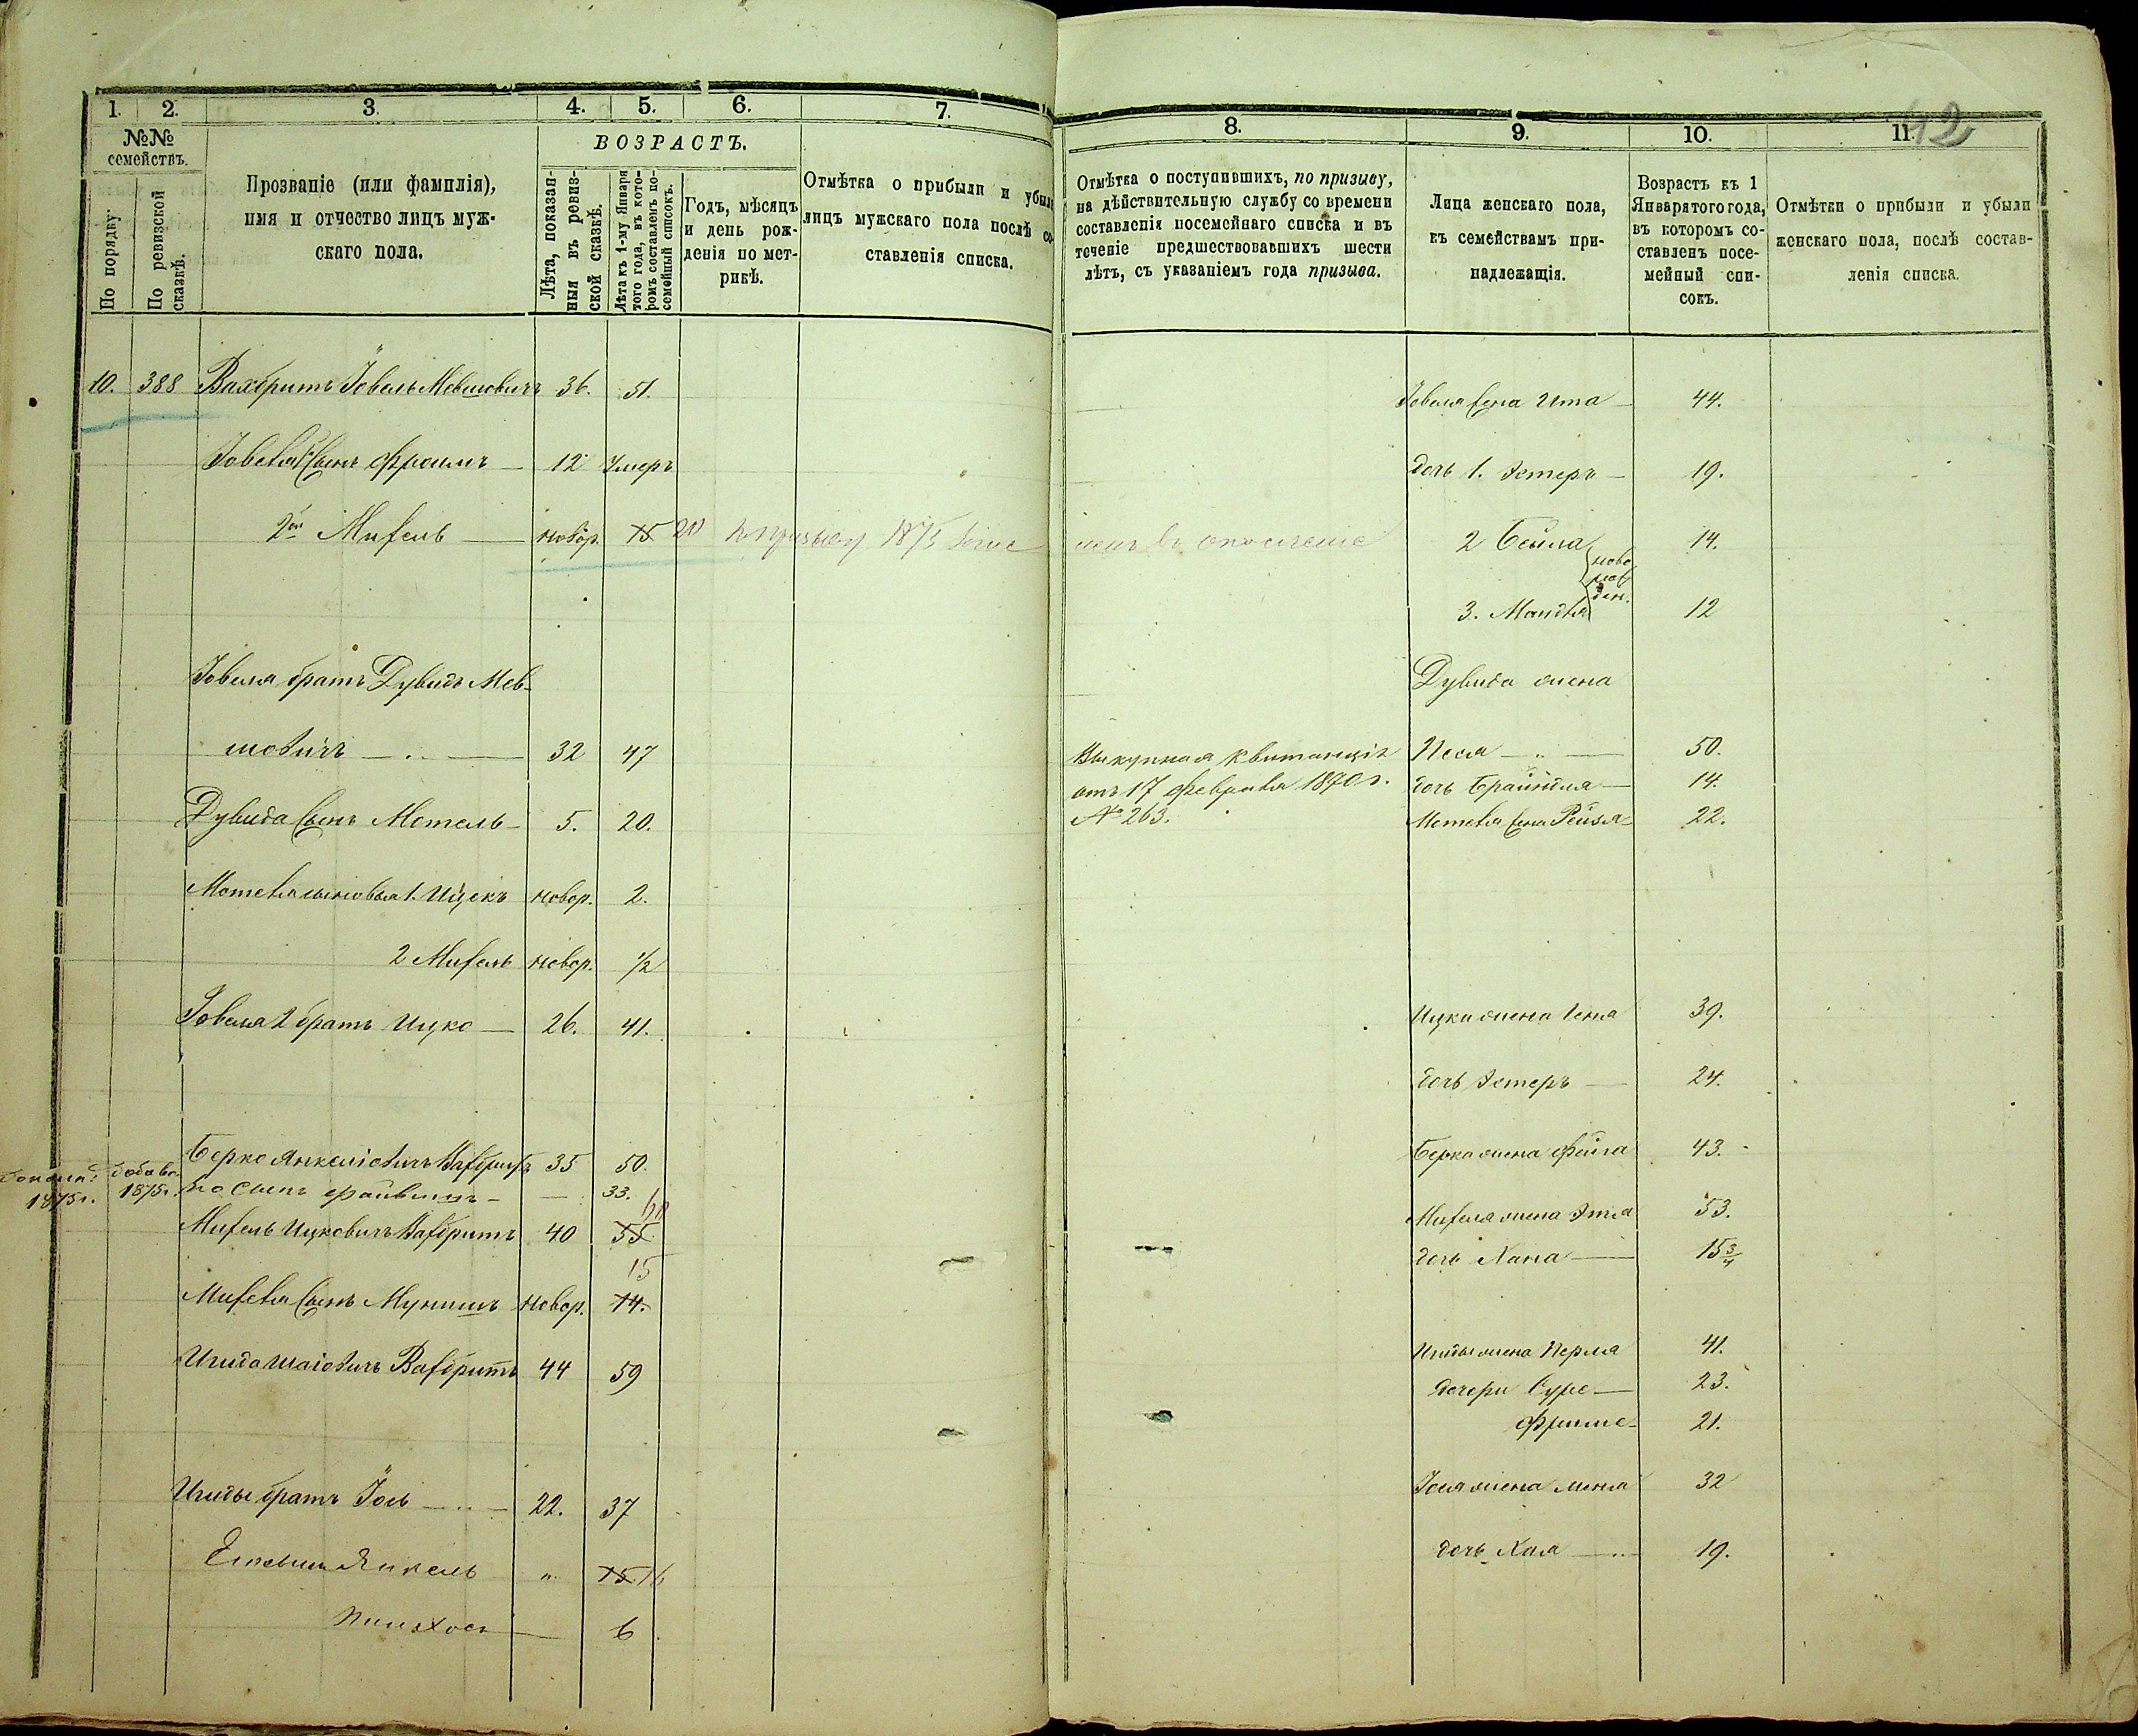 42
1. 2. 3. 4. 5. 6. 7.
№№ семействъ.
По порядку.
По ревизской сказкѣ.
Прозваніе (или фамилія),
имя и отчество лицъ муж-
скаго пола.
ВОЗРАСТЪ.
Лѣта, показан-
ныя въ ревиз-
ской сказкѣ.
Лѣта къ 1-му Января
того года, въ кото-
ромъ составленъ по-
семейный списокъ.
Годъ, мѣсяцъ
и день рож-
денія по мет-
рикѣ.
Отмѣтка о прибыли и убыли
лицъ мужскаго пола послѣ со-
ставленія списка.
10. 388 Вахбритъ Іовель Мевшовичъ 36. 51.
Іовеля сынъ Фроимъ — 12 Умеръ
2й Михель — новор. 15 20 къ призыву 1875 зачис
Іовеля братъ Дувидъ Мев-
шовичъ — 32 47
Дувида сынъ Мотель — 5. 20.
Мотеля сыновья 1. Ицекъ новор. 2.
2 Михель новор. ½
Іовеля 2 братъ Ицко — 26. 41.
Берко Янкеліовичъ Вахбритъ 35 50.
1875г. 1875г. его сынъ Файвишъ — — 33.
Михель Ицковичъ Вахбритъ 40 55 60
Михеля сынъ Мунишъ новор. 14. 15
Шаіовичъ Вахбритъ 44 59
братъ Іось — 22. 37
Его сынъ Янкель " 15 16
Пинхосъ — 6
8. 9. 10. 11.
Отмѣтка о поступившихъ, по призыву,
на дѣйствительную службу со времени
составленія посемейнаго списка и въ
теченіе предшествовавшихъ шести
лѣтъ, съ указаніемъ года призыва.
Лица женскаго пола,
къ семействамъ при-
надлежащія.
Возрастъ къ 1
Января того года,
въ которомъ со-
ставленъ посе-
мейный спи-
сокъ.
Отмѣтки о прибыли и убыли
женскаго пола, послѣ состав-
ленія списка.
Іовеля жена Ита — 44.
дочь 1. Эстеръ — 19.
ленъ въ ополченіе 2 Бейла 14.
3. Мандля 12
Дувида жена
Выкупная квитанція Песя — 50.
отъ 17 Февраля 1870 г. дочь Брайндля — 14.
№ 263. Мотеля жена Рейзя 22.
Ицки жена Геня 39.
дочь Эстеръ — 24.
Берка жена Фейга 43.
Михеля жена Этля 53.
дочь Хана — 15 ¾
жена Перля 41.
дочери Суре — 23.
Фриме — 21.
жена 32
дочь Хая — 19.